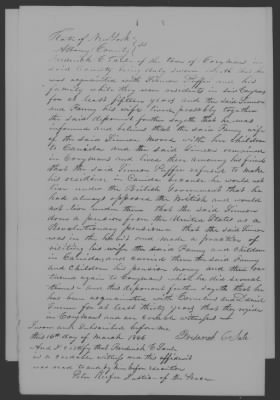 State of New York }
Albany County } SS
Frederick C. Sate of the town of Coeymans in
said County being duly sworn saith that he
was acquainted with Simeon and his
family while they were residents in said Coeymans
for at least fifteen years and the said Simeon
and Fanny his wife lived peaceably together
the said deponent further sayeth that he was
informed and believes that the said Fanny wife
of the said Simeon moved with her Children
to Canada and the said Simeon remained
in Coeymans and lived there among his friends
that the said Simeon refused to make
his residence in Canada because he would not
live under the British Government that he
had always opposed the British and would
not live under them that the said Simeon
drew a pension from the United States as a
Revolutionary pensioner that the said Simeon
was in the habit and made a practice of
visiting his wife the said Fanny and children
in Canada and carried them the said Fanny
and Children his pension money and then
again to Coeymans which he did several
times and this deponent further sayeth that he
has been acquainted with Cornelius and Daniel
for at least thirty years that they reside
in Coeymans and are credible witnesses
Sworn and Subscribed before me
this 16th day of March 1846 Frederick C Sate
And I certify that Frederick C Sate
is a credible witness and this affidavit
was read to by him before execution
Peter Justice of the Peace